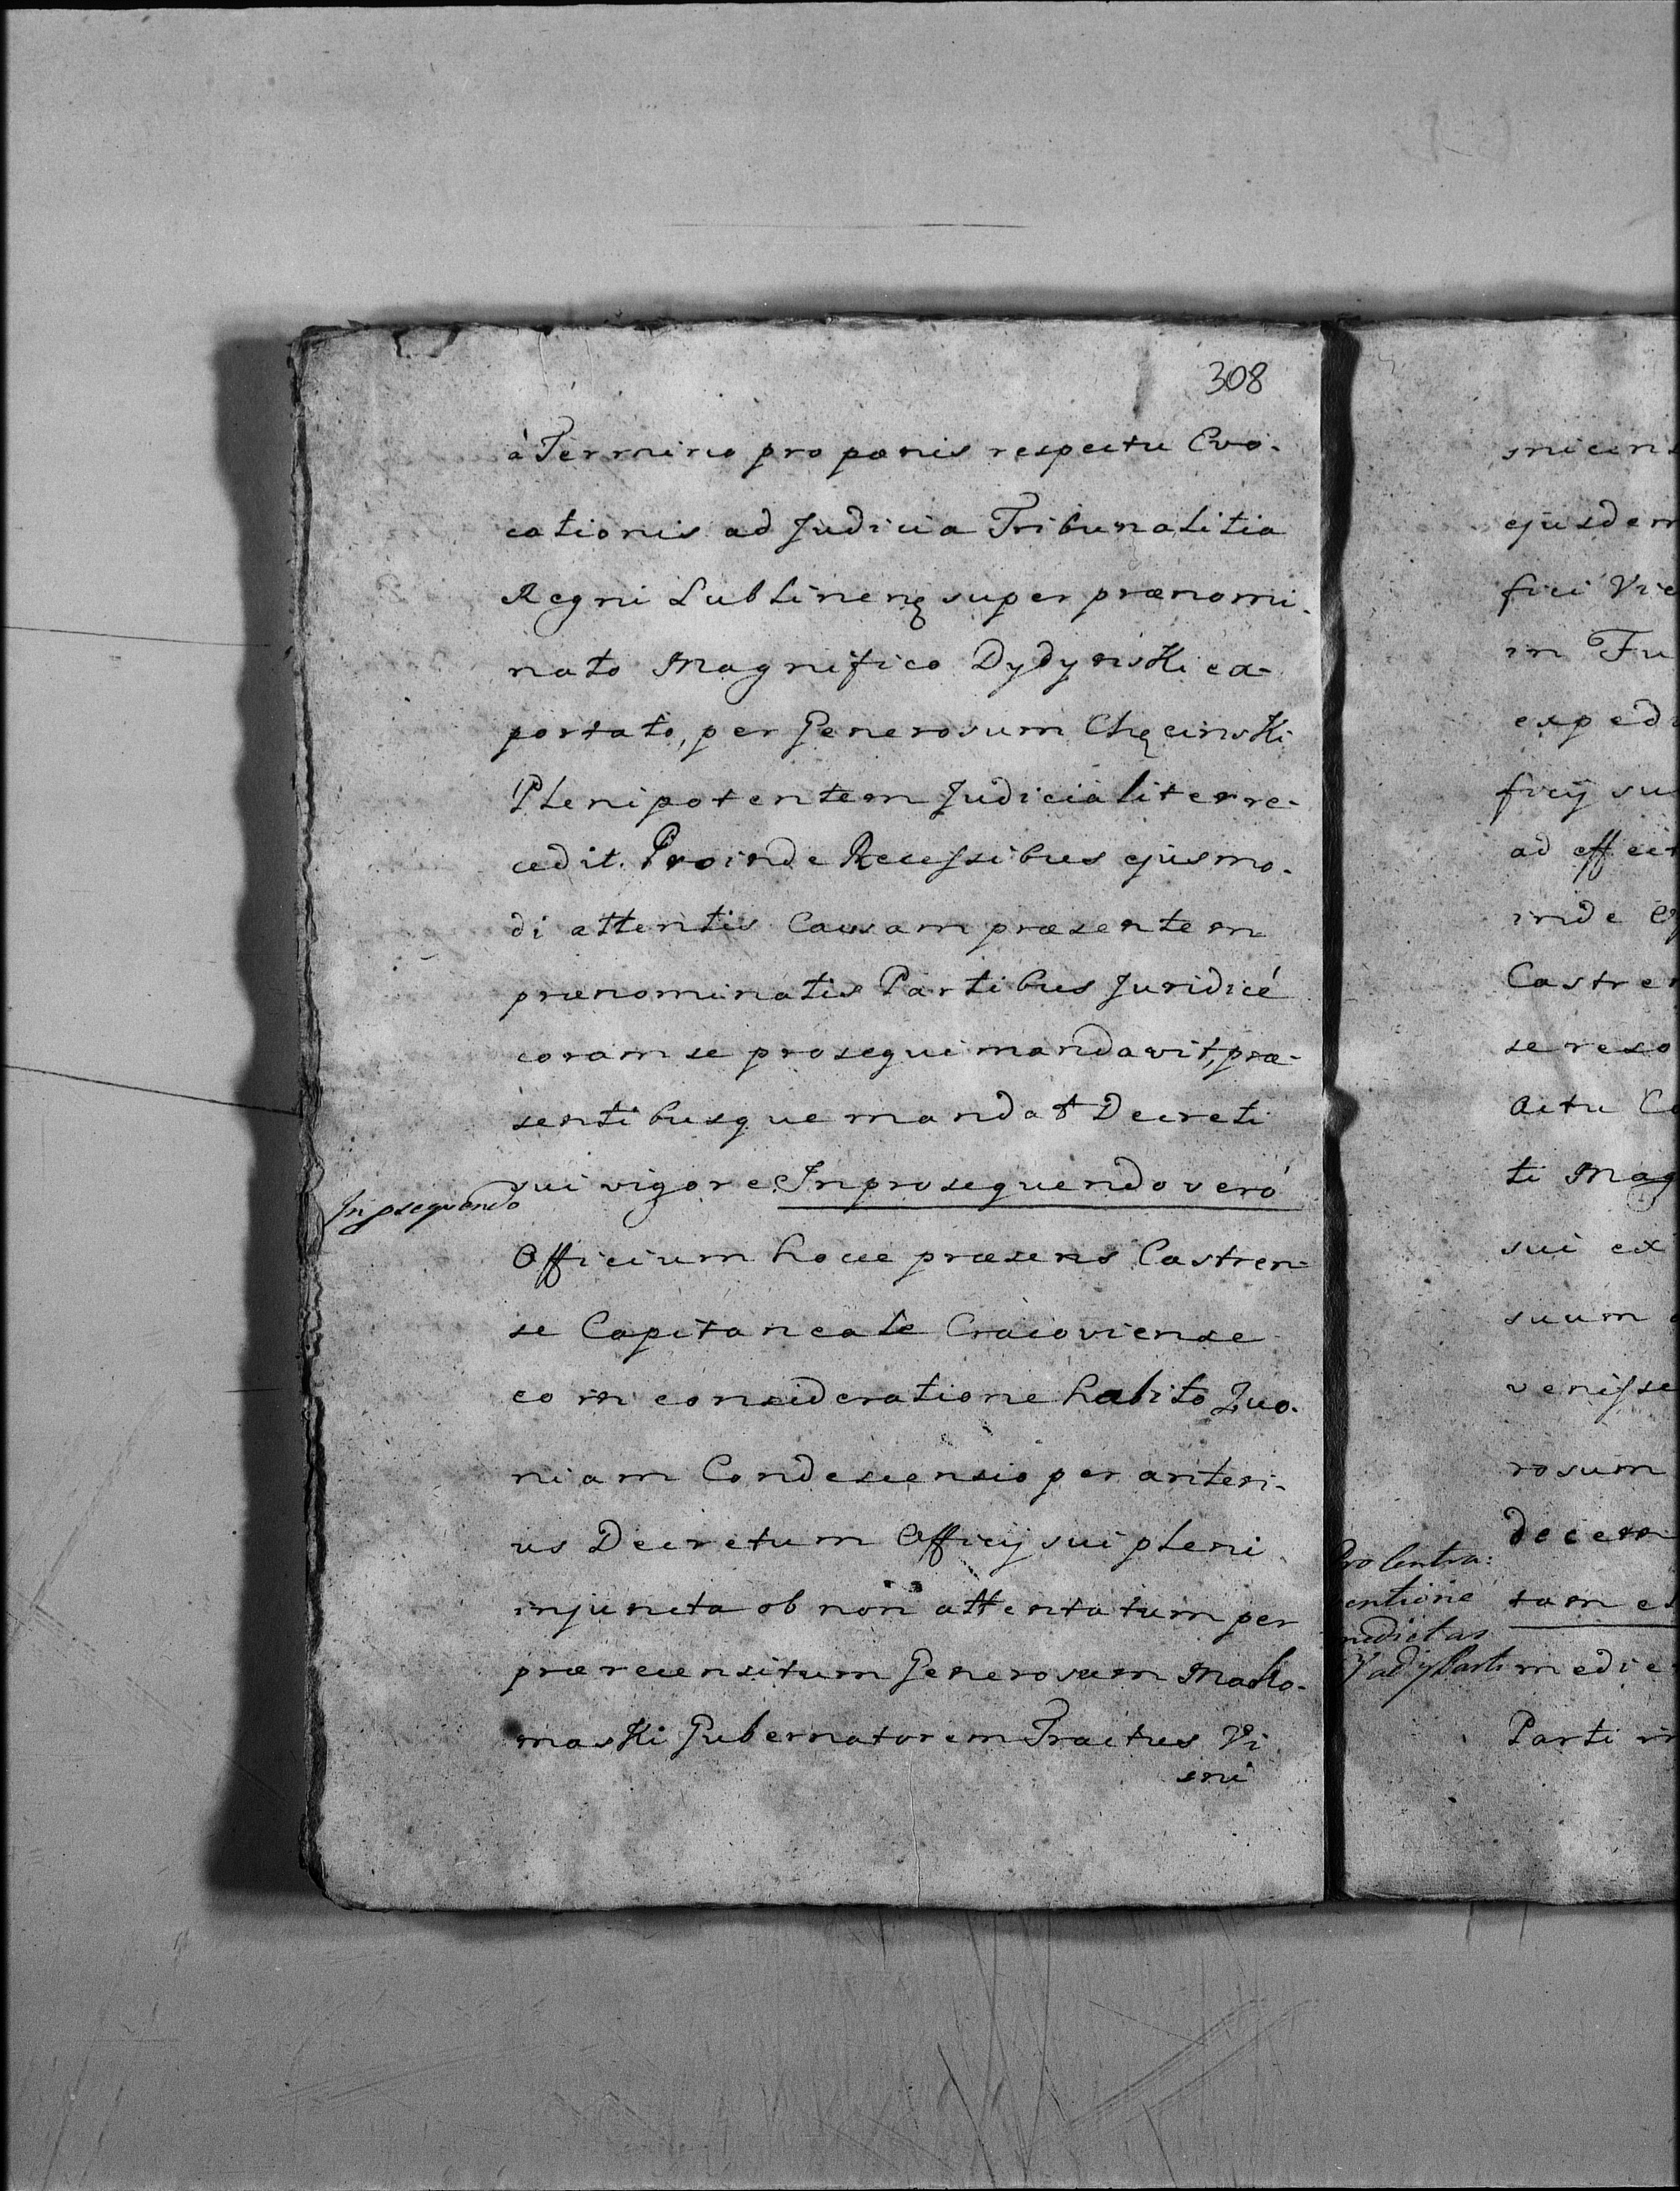 308
à Termino pro pænis respectu Evo-
cationis ad Judicia Tribunalitia
Regni Lublinenę super prænomi-
nato Magnifico Dydynski ex-
portato, per Generosum Chęcinski
Plenipotentem Judicialiter re-
cedit. Proinde Recessibus ejusmo-
di attentis Causam præsentem
prænominatis Partibus Juridicé
coram se prosequi mandavit, præ-
sentibusque mandat Decreti
sui vigore. In prosequendo veró
In psequendo
Officium hocce præsens Castren-
se Capitaneale Cracoviense
eo in consideratione habito Quo-
niam Condescensio per anteri-
us Decretum Officij sui pleni
injuncta ob non attentatum per
præreceensitum Generosum Mało-
maski Gubernatorem Tractus Vi
sni
snicens
ejusdem
fici Vic
in Fu
expedi
ficij su
ad effect
inde
Castren
se reso
Actu Co
ti Mag
sui ex
suum
venisse
rosum
decem
Pro Contra:
ventione
tam et
medietas
medie
Parti in